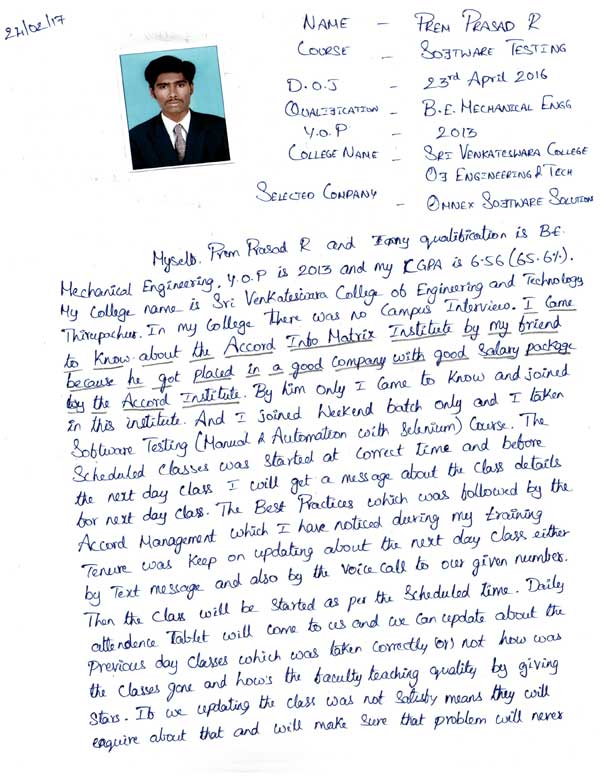 24/02/17
NAME - PREM PRASAD R
COURSE - SOFTWARE TESTING
D.O.J - 23rd April 2016
QUALIFICATION - B.E. MECHANICAL ENGG
Y.O.P - 2013
COLLEGE NAME - SRI VENKATESWARA COLLEGE
OF ENGINEERING & TECH
SELECTED COMPANY - OMNEX SOFTWARE SOLUTION
Myself. Prem Prasad R and my qualification is B.E.
Mechanical Engineering. Y.O.P is 2013 and my CGPA is 6.56 (65.6%).
My College name is Sri Venkateswara College of Engineering and Technology
Thirupachur. In my College there was no Campus Interview. I Came
to Know about the Accord Info Matrix Institute by my friend
because he got placed in a good Company with good Salary package
by the Accord Institute. By him only I Came to Know and joined
in this institute. And I joined Weekend batch only and I taken
Software Testing (Manual & Automation with Selenium) Course. The
Scheduled Classes was Started at Correct time and before
the next day Class I will get a message about the Class details
for next day Class. The Best Practices which was followed by the
Accord Management which I have noticed during my training
Tenure was Keep on updating about the next day Class either
by Text message and also by the Voice Call to our given number.
Then the Class will be Started as per the Scheduled time. Daily
attendence Tablet will come to us and we can update about the
Previous day Classes which was taken Correctly (or) not how was
the Classes gone and how's the faculty teaching quality by giving
Stars. If we updating the Class was not Satisfy means they will
enquire about that and will make Sure that problem will never